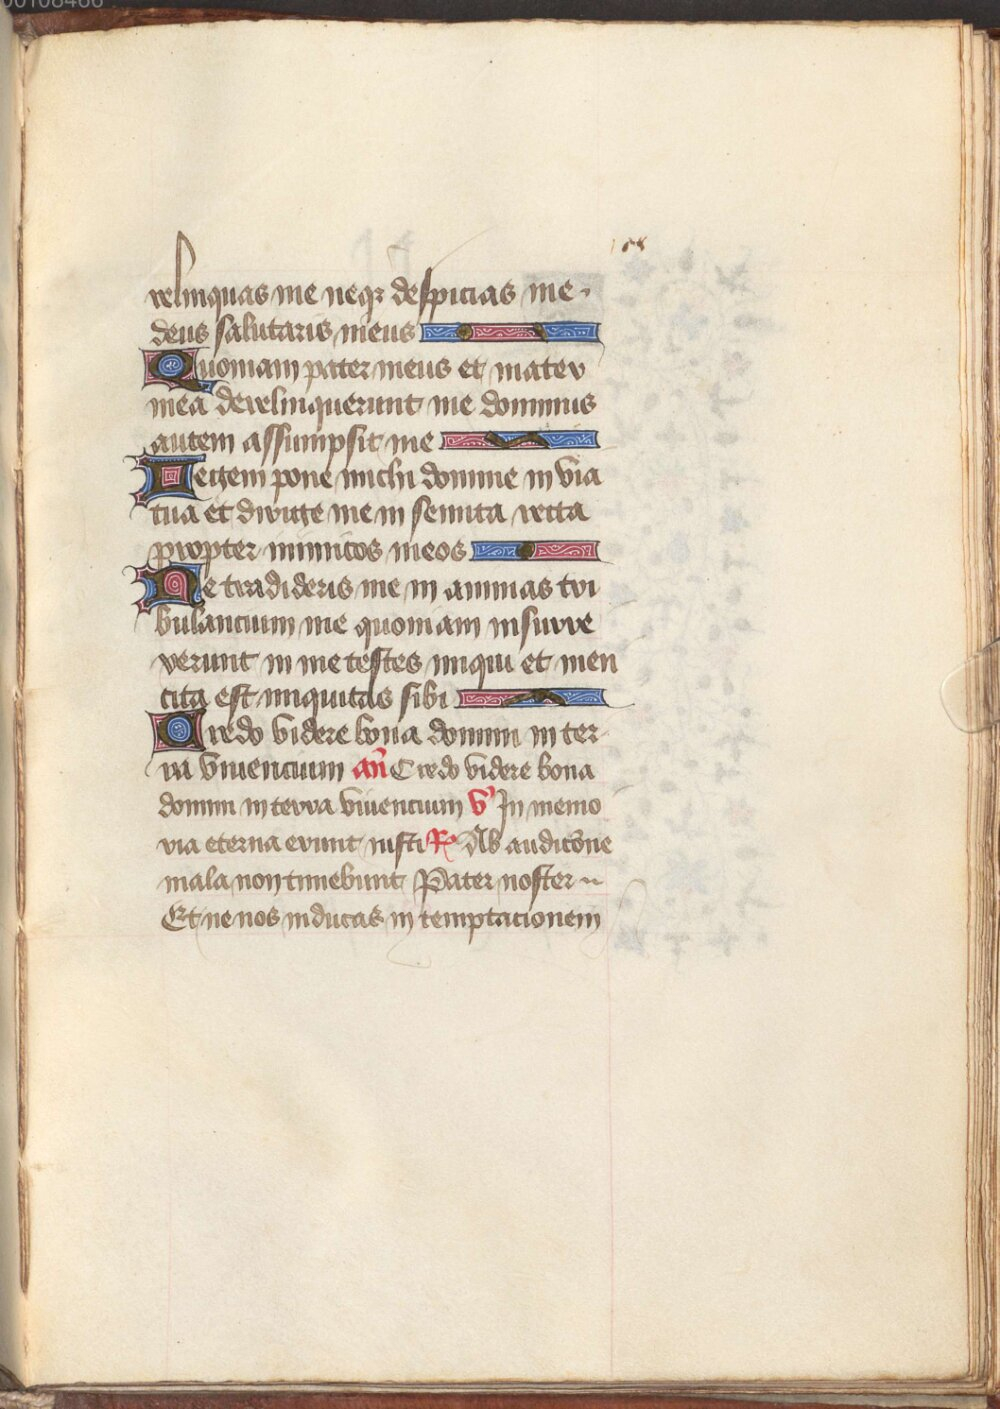 00108466
168
relinquas me neqꝫ despicias me
deus salutaris meus
Quoniam pater meus et mater
mea derelinquerunt me dominus
autem assumpsit me
Legem pone michi domine in via
tua et dirige me in semita recta
propter inimicos meos
Ne tradideris me in animas tri
bulancium me quoniam insurre
xerunt in me testes iniqui et men
tita est iniquitas sibi
Credo videre bona domini in ter-
ra viuencium añ Credo videre bona
domini in terra viuencium V̛ In memo
ria eterna erunt iusti R̛ Ab auditōne
mala non timebunt Pater noster
Et ne nos inducas in temptacionem